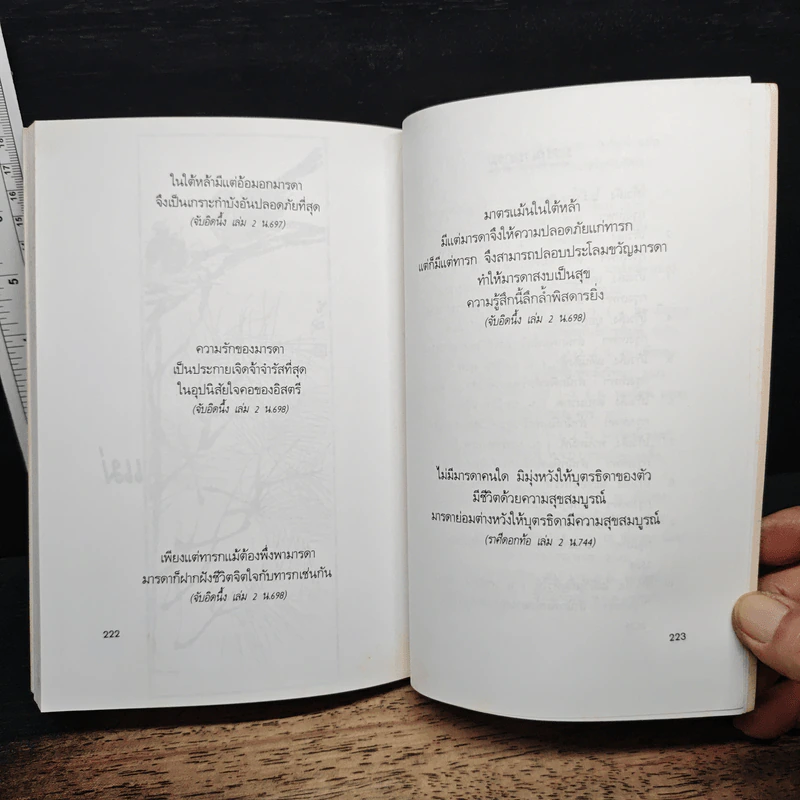 ในใต้หล้ามีแต่อ้อมอกมารดา
จึงเป็นเกราะกำบังอันปลอดภัยที่สุด
(จับอิดนึ้ง เล่ม 2 น.697)
ความรักของมารดา
เป็นประกายเจิดจ้าจำรัสที่สุด
ในอุปนิสัยใจคอของอิสตรี
(จับอิดนึ้ง เล่ม 2 น.698)
เพียงแต่ทารกแม้ต้องพึ่งพามารดา
มารดาก็ฝากฝังชีวิตจิตใจกับทารกเช่นกัน
(จับอิดนึ้ง เล่ม 2 น.698)
222
มาตรแม้นในใต้หล้า
มีแต่มารดาจึงให้ความปลอดภัยแก่ทารก
แต่ก็มีแต่ทารก จึงสามารถปลอบประโลมขวัญมารดา
ทำให้มารดาสงบเป็นสุข
ความรู้สึกนี้ลึกล้ำพิสดารยิ่ง
(จับอิดนึ้ง เล่ม 2 น.698)
ไม่มีมารดาคนใด มิมุ่งหวังให้บุตรธิดาของตัว
มีชีวิตด้วยความสุขสมบูรณ์
มารดาย่อมต่างหวังให้บุตรธิดามีความสุขสมบูรณ์
(ราศีดอกท้อ เล่ม 2 น.744)
223